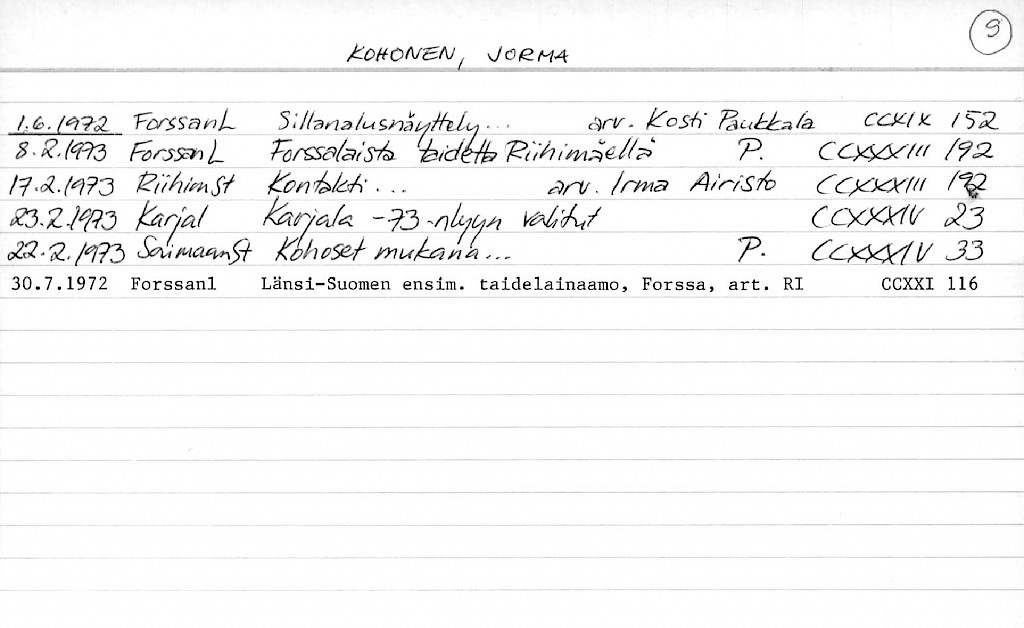 9
KOHONEN, JORMA
1.6.1972 ForssanL Sillanalusnäyttely... arv. Kosti Paukkala CCXIX 152
8.2.1973 ForssanL Forssalaista taidetta Riihimäellä P. CCXXXIII 192
17.2.1973 RiihimSt Kontakti... arv. Irma Airisto CCXXXIII 192
23.2.1973 Karjal Karjala -73-nlyyn valitut CCXXXIV 23
22.2.1973 SaimaanSt Kohoset mukana... P. CCXXXIV 33
30.7.1972 Forssanl Länsi-Suomen ensim. taidelainaamo, Forssa, art. RI CCXXI 116